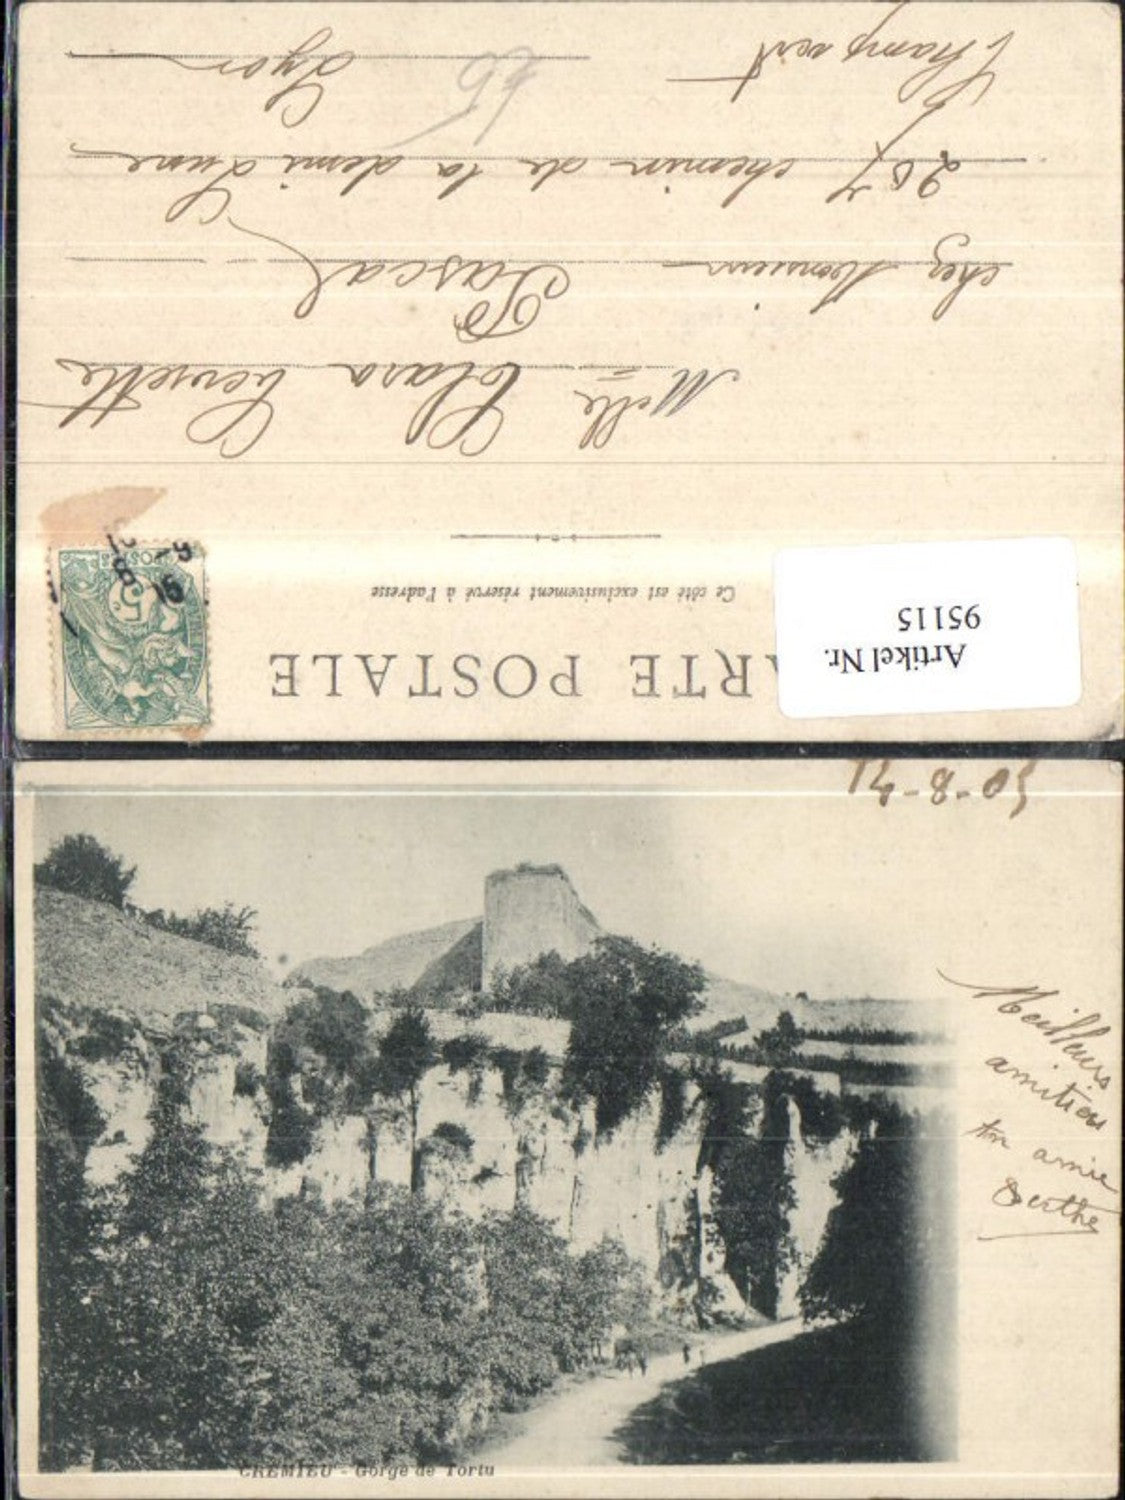 CARTE POSTALE
Ce côté est exclusivement réservé à l'adresse
Artikel Nr.
95115
POSTES
5
Melle Clara
chez Monsieur Pascal
207 chemin de la demi Lune
Champvert Lyon
14-8-05
Meilleurs
amitiés
ton amie
Berthe
CREMIEU - Gorge de Tortu